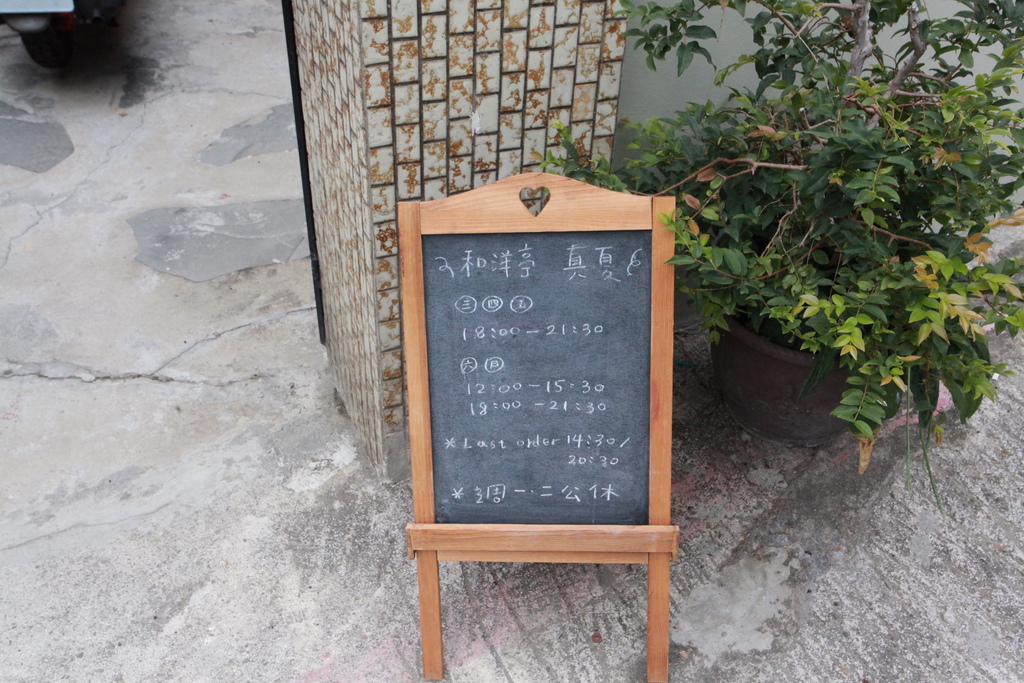 和洋亭 真夏
三 四 五
18:00-21:30
六 日
12:00-15:30
18:00-21:30
*Last order 14:30/
20:30
*每周一.二公休